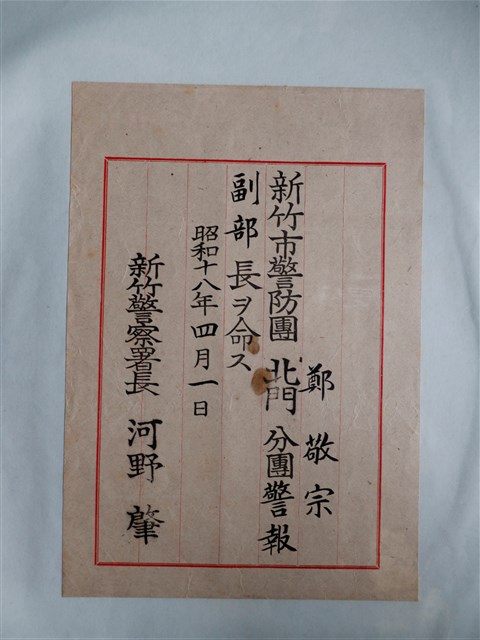 鄭敬宗
新竹市警防團北門分團警報
副部長ヲ命ス
昭和十八年四月一日
新竹警察署長 河野肇